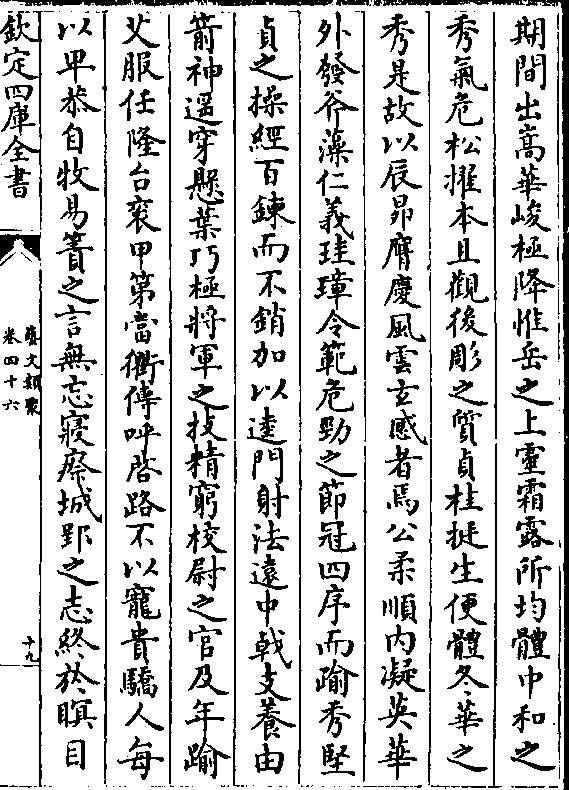 期間出高華峻極降惟岳之上靈霜露所均體中和之
秀氣危松擢本且觀後彫之質貞桂挺生便體冬華之
秀是故以辰昴膺慶風雲玄感者焉公柔順内凝英華
外發斧藻仁義珪璋令範危勁之節冠四序而踰秀堅
貞之操經百鍊而不銷加以逵門射法遠中戟支養由
箭神遥穿懸葉巧極將軍之技精窮校尉之官及年踰
艾服任隆台衮甲第當衢傳呼啓路不以寵貴驕人每
以卑恭自牧易簀之言無忘寢瘵城郢之志終於瞑目
欽定四庫全書
藝文類聚
卷四十六
十九